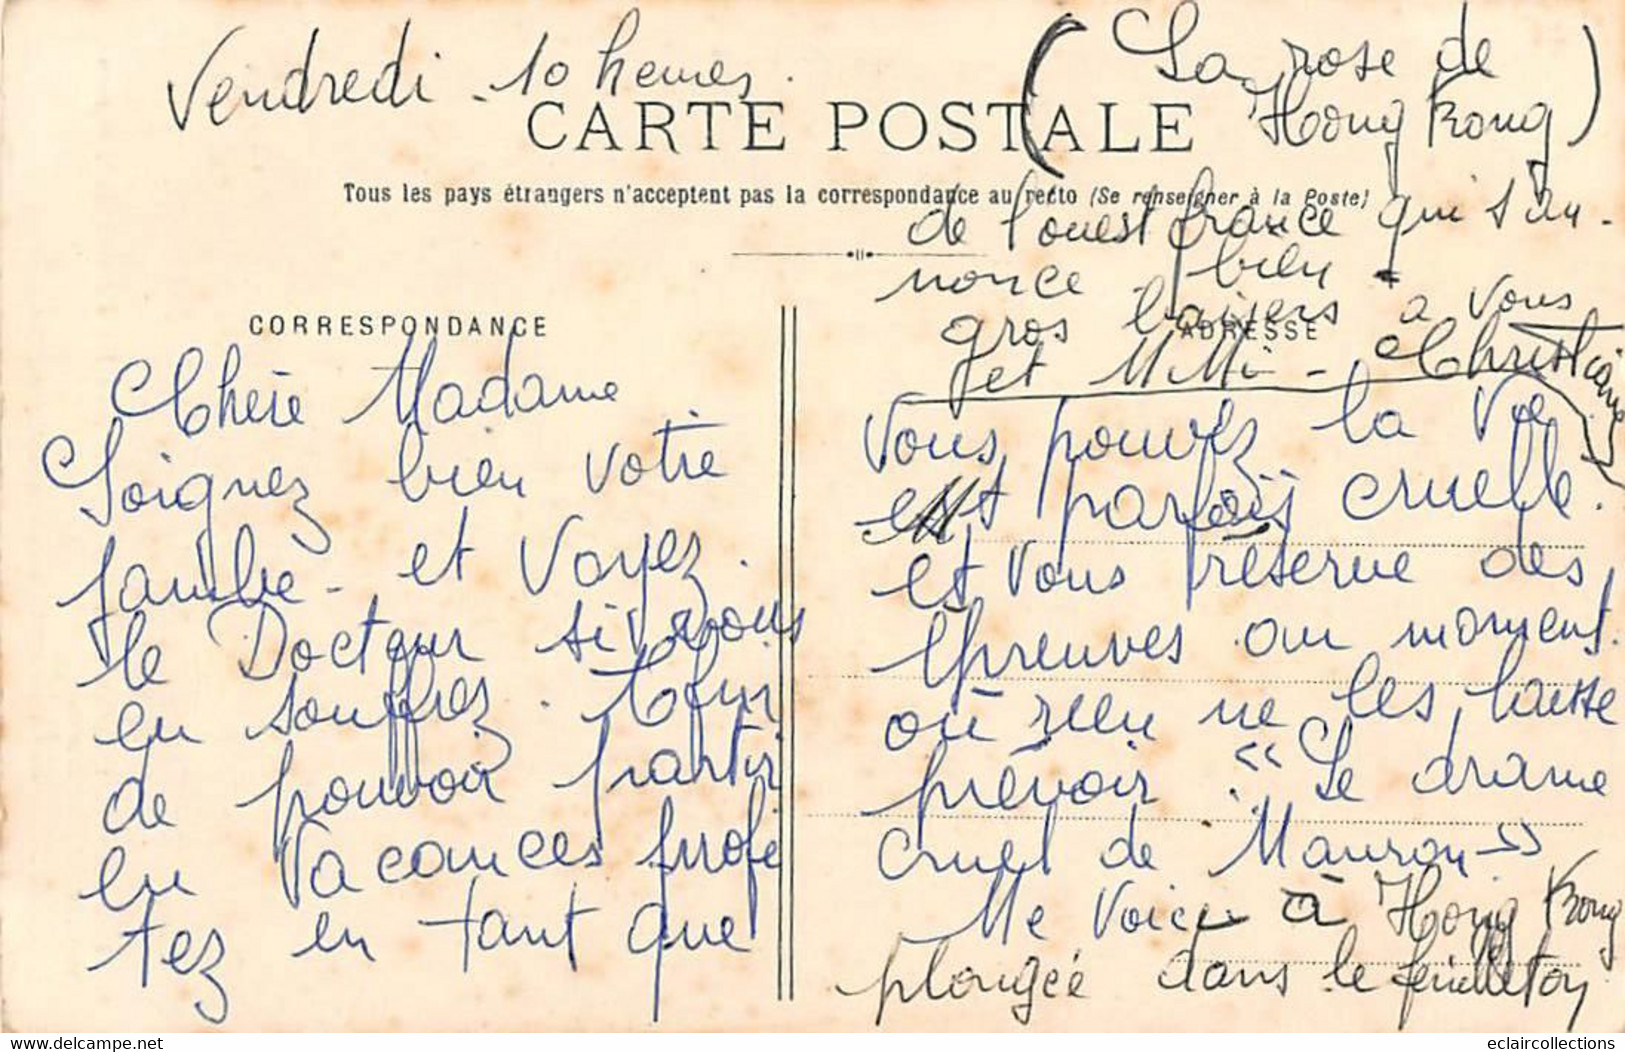 Vendredi - 10 heures.
CARTE POSTALE
Tous les pays étrangers n'acceptent pas la correspondance au recto (Se renseigner à la Poste)
CORRESPONDANCE
Chère Madame
Soignez bien votre
jambe - et voyez
le Docteur si vous
en souffrez. Afin
de pouvoir partir
en vacances profi
tez en tant que
ADRESSE
vous pouvez la vie
est parfois cruelle.
et vous réserve des
épreuves au moment
où rien ne les laisse
prévoir : "Le drame
cruel de Mauron"
Me voici à Hong Kong
plongée dans le feuilleton
(La rose de
Hong Kong)
de l'ouest france qui s'an-
nonce bien.
gros baisers a vous
et Mimi - Christiane
eclaircollections